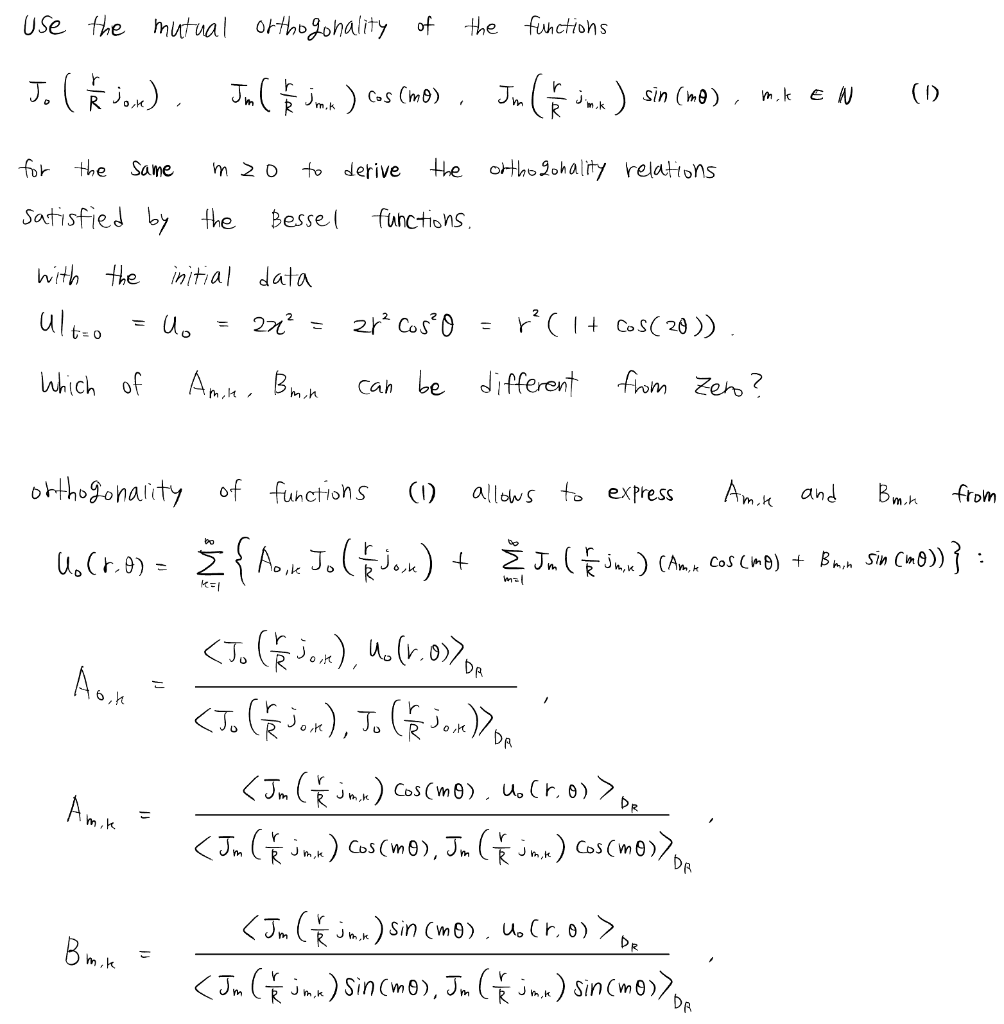 Use the mutual orthogonality of the functions
J₀(r/R j₀,ₖ), Jₘ(r/R jₘ,ₖ) cos(mθ), Jₘ(r/R jₘ,ₖ) sin(mθ), m,k ∈ ℕ (1)
for the same m ≥ 0 to derive the orthogonality relations
satisfied by the Bessel functions.
With the initial data
U|t=0 = U₀ = 2x² = 2r² cos²θ = r²(1 + cos(2θ)).
Which of Aₘ,ₖ, Bₘ,ₖ can be different from zero?
orthogonality of functions (1) allows to express Aₘ,ₖ and Bₘ,ₖ from
U₀(r,θ) = ∑_{k=1}^{∞} { A₀,ₖ J₀(r/R j₀,ₖ) + ∑_{m=1}^{∞} Jₘ(r/R jₘ,ₖ) (Aₘ,ₖ cos(mθ) + Bₘ,ₖ sin(mθ)) } :
A₀,ₖ = <J₀(r/R j₀,ₖ), U₀(r,θ)>_{D_R} / <J₀(r/R j₀,ₖ), J₀(r/R j₀,ₖ)>_{D_R} ,
Aₘ,ₖ = <Jₘ(r/R jₘ,ₖ) cos(mθ), U₀(r,θ)>_{D_R} / <Jₘ(r/R jₘ,ₖ) cos(mθ), Jₘ(r/R jₘ,ₖ) cos(mθ)>_{D_R} ,
Bₘ,ₖ = <Jₘ(r/R jₘ,ₖ) sin(mθ), U₀(r,θ)>_{D_R} / <Jₘ(r/R jₘ,ₖ) sin(mθ), Jₘ(r/R jₘ,ₖ) sin(mθ)>_{D_R} ,